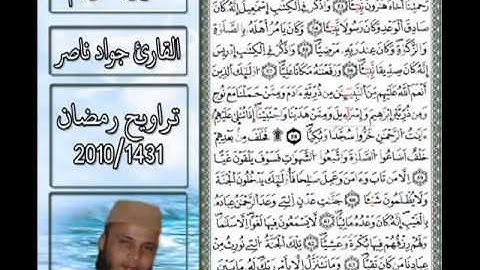 رحمتنا أخاه هرون نبيئا واذكر في الكتب إسمعيل إنه كان
صادق الوعد وكان رسولا نبيئا وكان يأمر أهله بالصلوة
والزكوة وكان عند ربه مرضيا واذكر في الكتب إدريس
إنه كان صديقا نبيئا ورفعنه مكانا عليا أولئك الذين
أنعم الله عليهم من النبيئين من ذرية ءادم وممن حملنا مع نوح
ومن ذرية إبرهيم وإسرءيل وممن هدينا واجتبينا إذا تتلى عليهم
ءايت الرحمن خروا سجدا وبكيا فخلف من بعدهم
خلف أضاعوا الصلوة واتبعوا الشهوت فسوف يلقون غيا
إلا من تاب وءامن وعمل صلحا فأولئك يدخلون الجنة
ولا يظلمون شيئا جنت عدن التي وعد الرحمن عباده
بالغيب إنه كان وعده مأتيا لا يسمعون فيها لغوا إلا سلما
ولهم رزقهم فيها بكرة وعشيا تلك الجنة التي نورث من
عبادنا من كان تقيا وما نتنزل إلا بأمر ربك له ما بين
القارئ جواد ناصر
تراويح رمضان
2010/1431